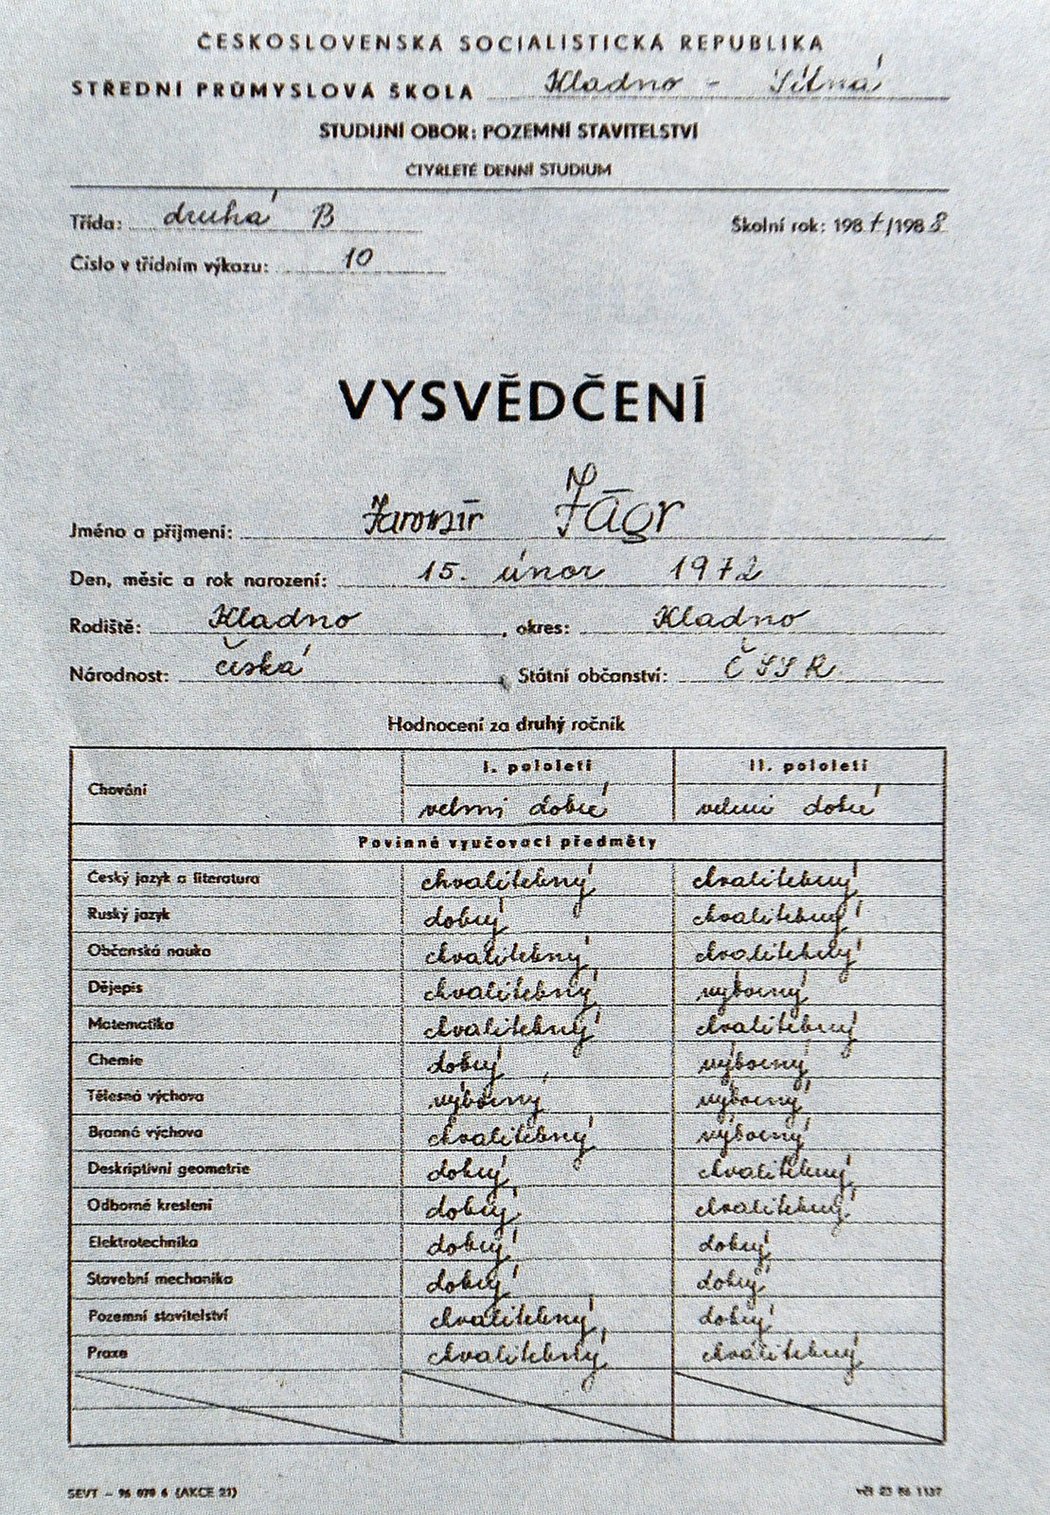 ČESKOSLOVENSKÁ SOCIALISTICKÁ REPUBLIKA
STŘEDNÍ PRŮMYSLOVÁ ŠKOLA Kladno - Sítná
STUDIJNÍ OBOR: POZEMNÍ STAVITELSTVÍ
ČTYŘLETÉ DENNÍ STUDIUM
Třída: druhá B Školní rok: 1987/1988
Číslo v třídním výkazu: 10
VYSVĚDČENÍ
Jméno a příjmení: Jaromír Jágr
Den, měsíc a rok narození: 15. únor 1972
Rodiště: Kladno, okres: Kladno
Národnost: česká Státní občanství: ČSSR
Hodnocení za druhý ročník
Chování I. pololetí II. pololetí
velmi dobré velmi dobré
Povinné vyučovací předměty
Český jazyk a literatura chvalitebný chvalitebný
Ruský jazyk dobrý chvalitebný
Občanská nauka chvalitebný chvalitebný
Dějepis chvalitebný výborný
Matematika chvalitebný chvalitebný
Chemie dobrý výborný
Tělesná výchova výborný výborný
Branná výchova chvalitebný výborný
Deskriptivní geometrie dobrý chvalitebný
Odborné kreslení dobrý chvalitebný
Elektrotechnika dobrý dobrý
Stavební mechanika dobrý dobrý
Pozemní stavitelství chvalitebný dobrý
Praxe chvalitebný chvalitebný
SEVT – 96 070 6 (AKCE 21)